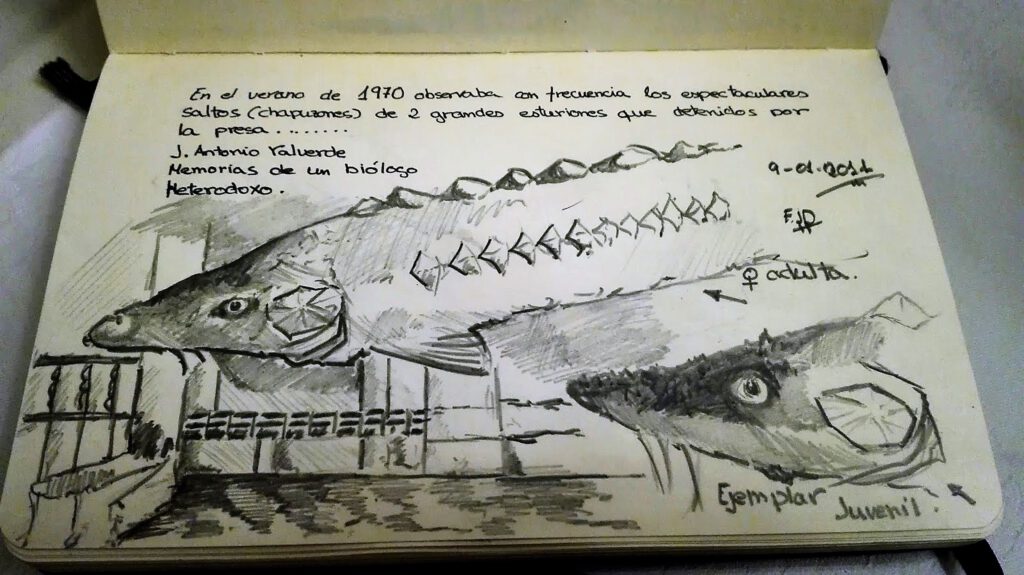 En el verano de 1970 observaba con frecuencia los espectaculares
saltos (chapuzones) de 2 grandes esturiones que detenidos por
la presa ........
J. Antonio Valverde
Memorias de un biólogo
Heterodoxo.
9-01-2011
♀ adulta.
Ejemplar
Juvenil.